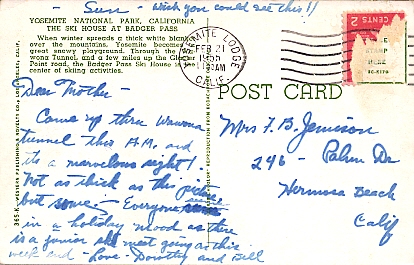 Sun - wish you could see this!!
YOSEMITE NATIONAL PARK, CALIFORNIA
THE SKI HOUSE AT BADGER PASS
When winter spreads a thick white blanket
over the mountains, Yosemite becomes
great snowy playground. Through
wona Tunnel, and a few miles up the Glacier
Point road, the Badger Pass Ski House is
center of skiing activities.
YOSEMITE LODGE
FEB 21
AM
CALIF.
2 CENTS 2
PLACE
STAMP
HERE
POST CARD
Dear Mother -
Came up thru Wawona
tunnel this A.M. and
it's a marvelous sight!
Not as thick as this picture
but some - Everyone
in a holiday mood as there
is a junior ski meet going on this
week end - Love - Dorothy and Bill
Mrs F. B. Jemison
246 - Palm Dr
Hermosa Beach
Calif